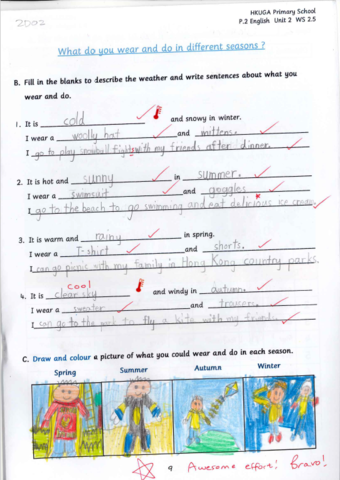 2002
HKUGA Primary School
P.2 English Unit 2 WS 2.5
What do you wear and do in different seasons ?
B. Fill in the blanks to describe the weather and write sentences about what you
wear and do.
1. It is cold and snowy in winter.
I wear a woolly hat and mittens.
I go to play snowball fight with my friends after dinner.
2. It is hot and sunny in summer.
I wear a swimsuit and goggles
I go to the beach to go swimming and eat delicious ice cream.
3. It is warm and rainy in spring.
I wear a T-shirt and shorts.
I can go picnic with my family in Hong Kong country parks.
cool
4. It is clear sky and windy in autumn.
I wear a sweater and trousers.
I can go to the park to fly a kite with my friends.
C. Draw and colour a picture of what you could wear and do in each season.
Spring Summer Autumn Winter
9 Awesome effort! Bravo!